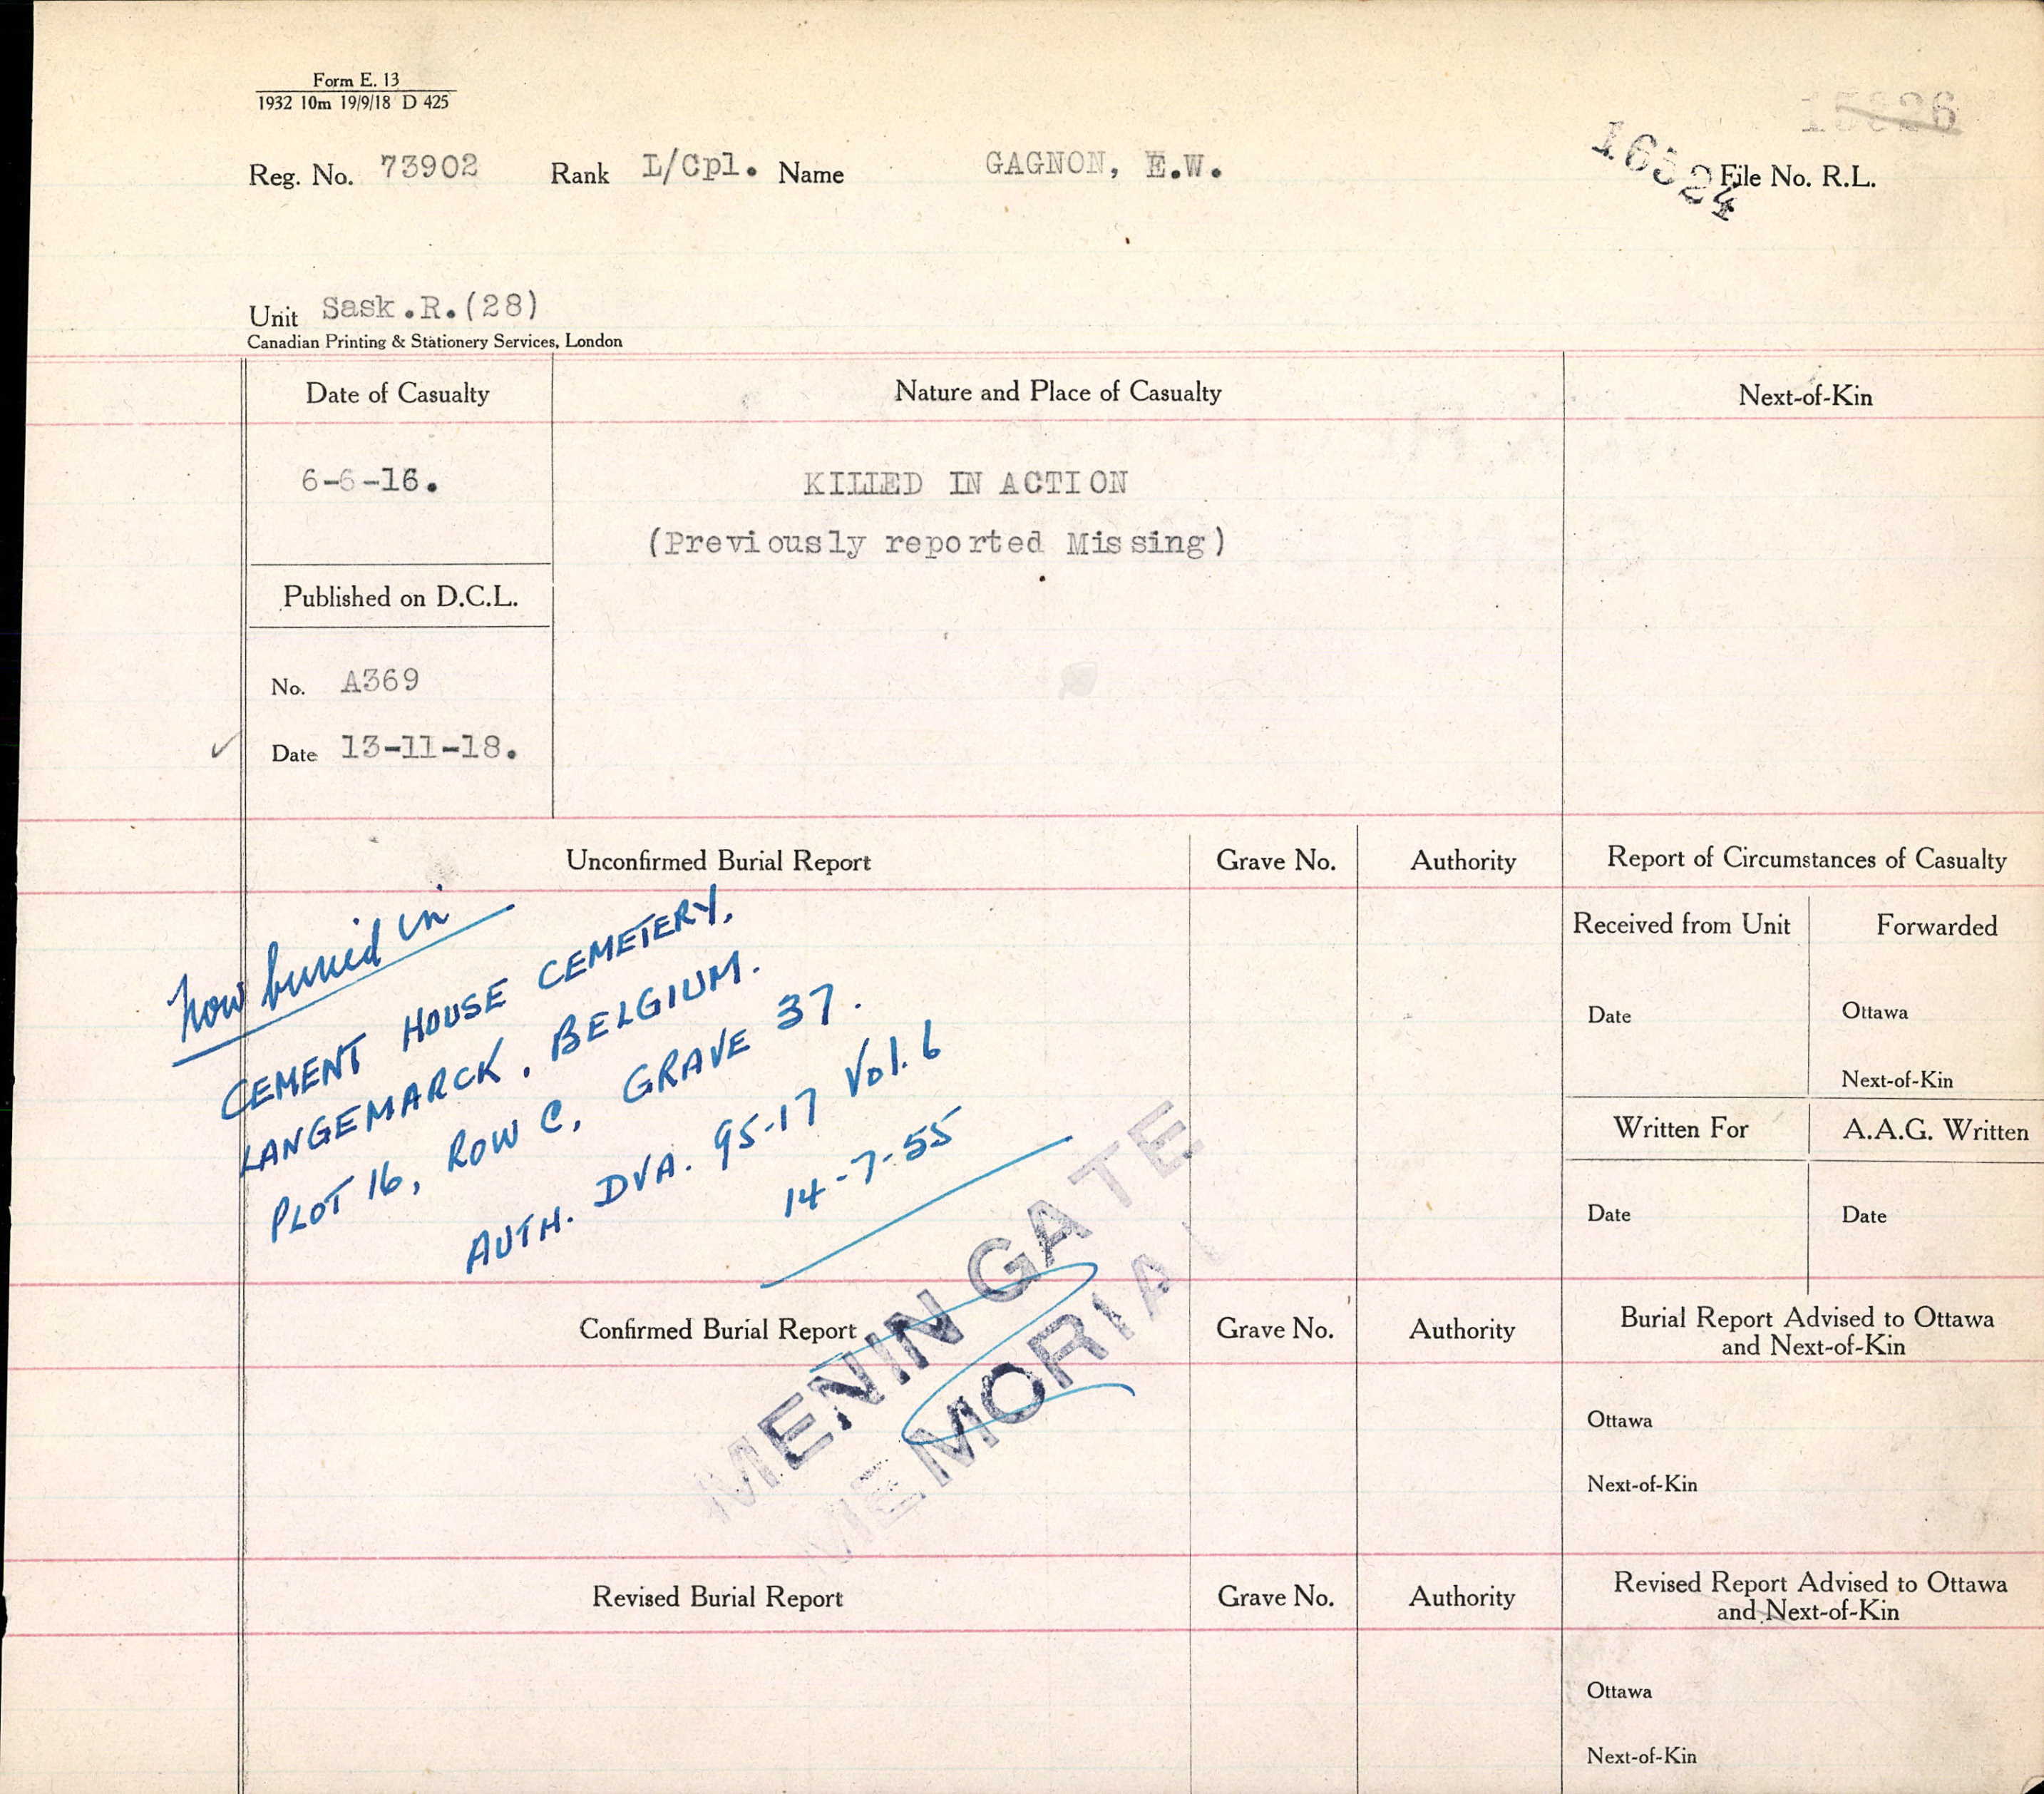 Form E. 13
1932 10m 19/9/18 D 425
Reg. No. 73902 Rank L/Cpl. Name GAGNON, E.W. File No. R.L.
Unit Sask.R.(28)
Canadian Printing & Stationery Services, London
Date of Casualty Nature and Place of Casualty Next-of-Kin
6-6-16. KILLED IN ACTION
(Previously reported Missing)
Published on D.C.L.
No. A369
Date 13-11-18.
Unconfirmed Burial Report Grave No. Authority Report of Circumstances of Casualty
Received from Unit Forwarded
Date Ottawa
Next-of-Kin
Written For A.A.G. Written
Date Date
now buried in
CEMENT HOUSE CEMETERY,
LANGEMARCK, BELGIUM.
PLOT 16, ROW C, GRAVE 37.
AUTH. DVA. 95-17 Vol. 6
14-7-55
MENIN GATE
MEMORIAL
Confirmed Burial Report Grave No. Authority Burial Report Advised to Ottawa
and Next-of-Kin
Ottawa
Next-of-Kin
Revised Burial Report Grave No. Authority Revised Report Advised to Ottawa
and Next-of-Kin
Ottawa
Next-of-Kin